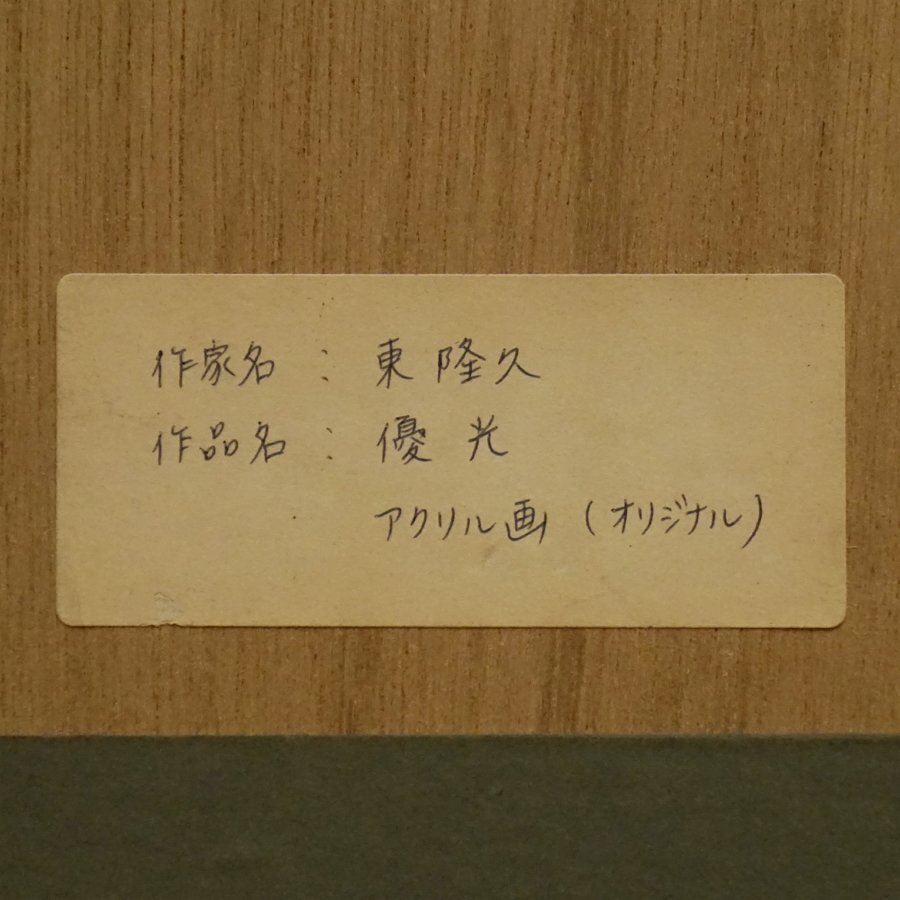 作家名 : 東 隆久
作品名 : 優 光
アクリル画 (オリジナル)